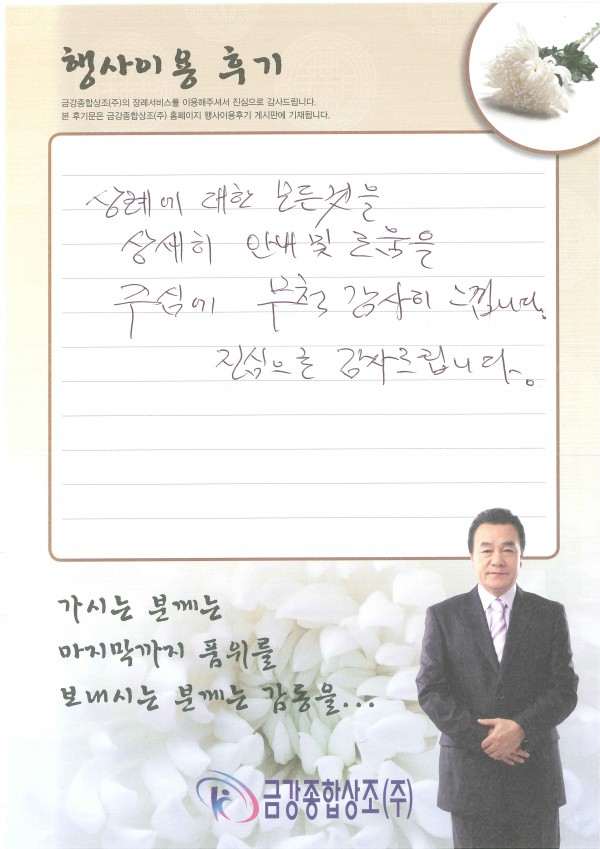 행사이용 후기
금강종합상조(주)의 장례서비스를 이용해주셔서 진심으로 감사드립니다.
본 후기문은 금강종합상조(주) 홈페이지 행사이용후기 게시판에 기재됩니다.
상례에 대한 모든것을
상세히 안내 및 도움을
주심에 무척 감사히 느낍니다.
진심으로 감사드립니다.
가시는 분께는
마지막까지 품위를
보내시는 분께는 감동을...
금강종합상조(주)